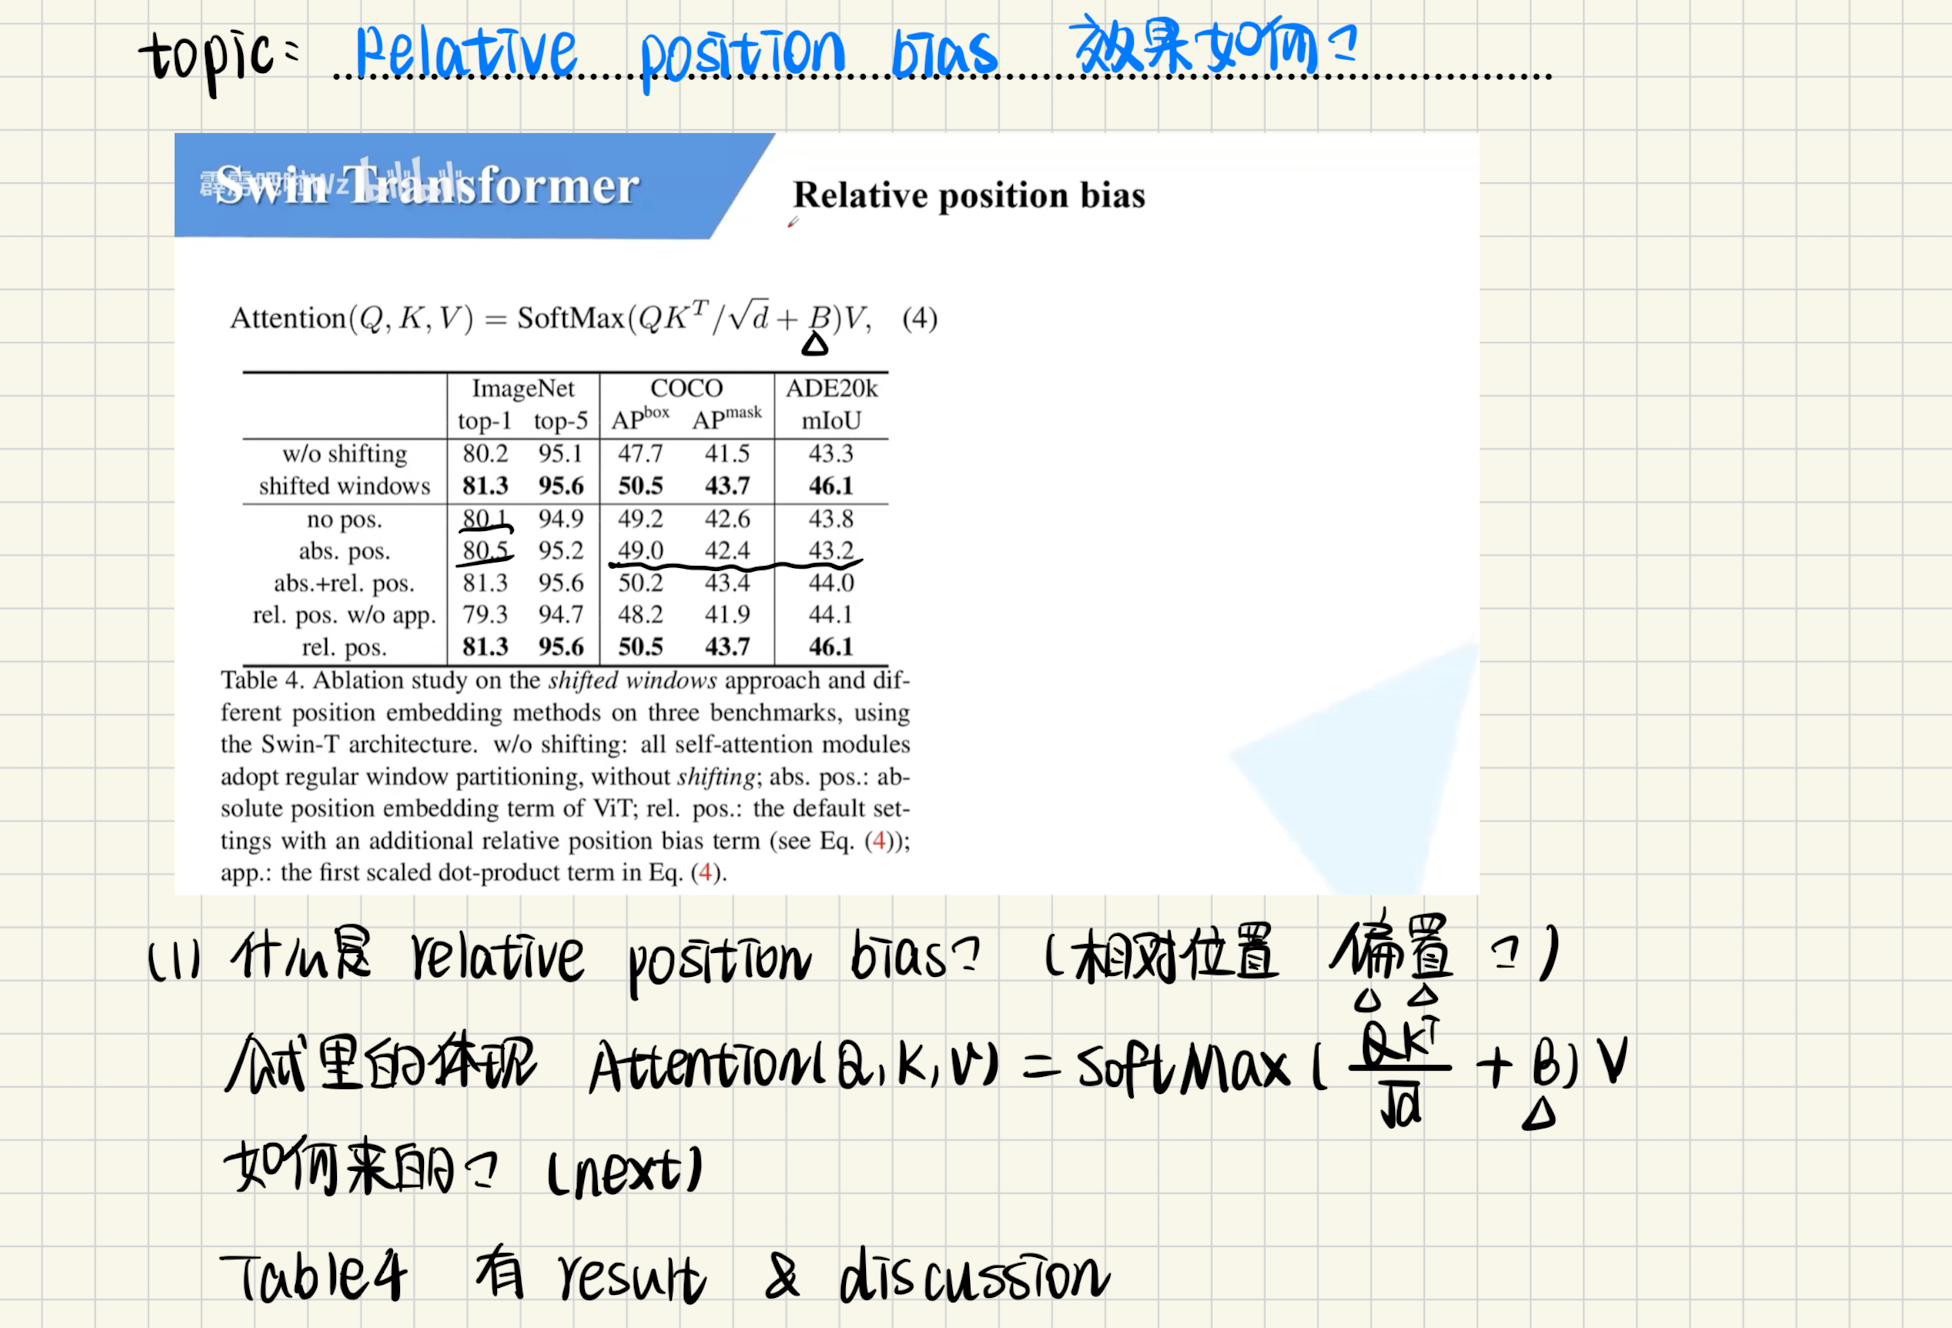 topic: Relative position bias 效果如何?
Swin Transformer
Relative position bias
Attention(Q, K, V) = SoftMax(QK^T/√d + B)V, (4)
ImageNet COCO ADE20k
top-1 top-5 AP^box AP^mask mIoU
w/o shifting 80.2 95.1 47.7 41.5 43.3
shifted windows 81.3 95.6 50.5 43.7 46.1
no pos. 80.1 94.9 49.2 42.6 43.8
abs. pos. 80.5 95.2 49.0 42.4 43.2
abs.+rel. pos. 81.3 95.6 50.2 43.4 44.0
rel. pos. w/o app. 79.3 94.7 48.2 41.9 44.1
rel. pos. 81.3 95.6 50.5 43.7 46.1
Table 4. Ablation study on the shifted windows approach and dif-
ferent position embedding methods on three benchmarks, using
the Swin-T architecture. w/o shifting: all self-attention modules
adopt regular window partitioning, without shifting; abs. pos.: ab-
solute position embedding term of ViT; rel. pos.: the default set-
tings with an additional relative position bias term (see Eq. (4));
app.: the first scaled dot-product term in Eq. (4).
(1) 什么是 relative position bias? (相对位置 偏置?)
公式里的体现 Attention(Q,K,V) = SoftMax(QK^T/√d + B)V
如何来的? (next)
Table4 有 result & discussion